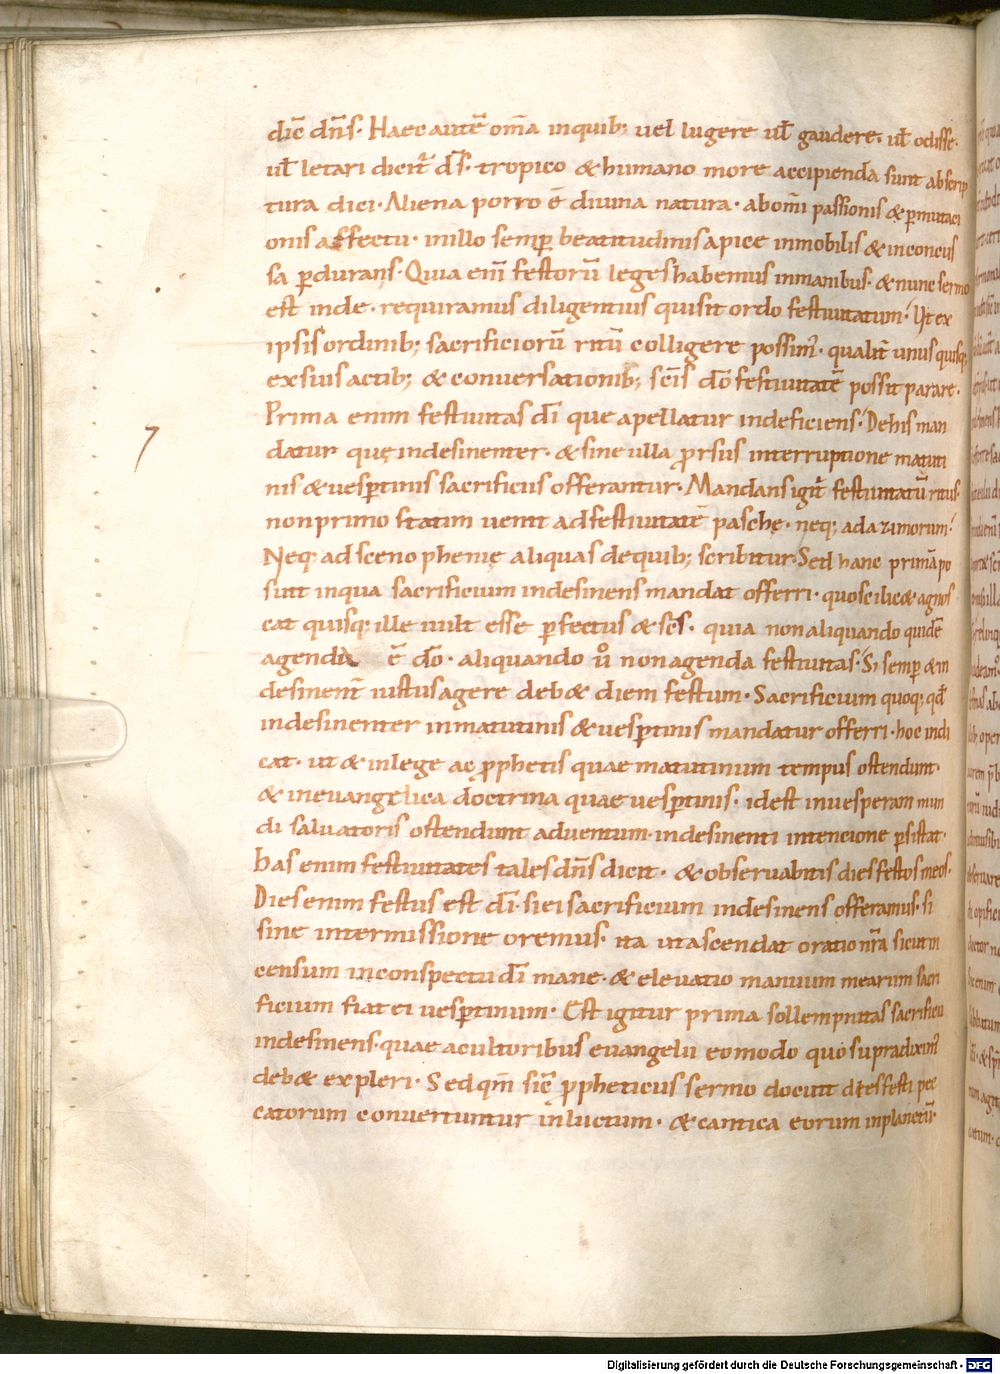 dic̄ dn̄s. Haec autē om̄a inquib; uel lugere ul̄ gaudere. ul̄ odisse.
ul̄ letari dicit̄ ds̄. tropico & humano more accipienda sunt abscrip
tura dici. Aliena porro ē diuina natura. abom̄i passionis & p̄mutaci
onis affectu. inillo semp̄ beatitudinis apice inmobilis & inconcus
sa p̄durans. Quia eni̅ festorū leges habemus inmanibus. & nunc sermo
est inde. requiramus diligentius quis sit ordo festiuitatum. Ut ex
ipsis ordinib; sacrificiorū ritū colligere possim̄. qualit̄ unus quisq;
exsuis actib; & conuersationib; sc̄is dō festiuitatē possit parare.
Prima enim festiuitas dī que apellatur indeficiens. Dehis man
datur quę indesinenter. & sine ulla p̄rsus interruptione matuti
nis & uesp̄tinis sacrificiis offerantur. Mandans igit̄ festiuitatū ritus.
non primo statim uenit ad festiuitatē paschę. neq; ad azimorum.
Neq; ad scenophenię aliquas dequib; scribitur. Sed hanc primā po
suit inqua sacrificium indesinens mandat offerri. quo scilic& agnos
cat quisq; ille uult esse p̄fectus & sc̄s. quia non aliquando quidē
agenda ē dō. aliquando u̅o non agenda festiuitas. Si semp̄ & in
desinent̄ iustus agere deb& diem festum. Sacrificium quoq; qd̄
indesinenter inmatutinis & uesp̄tinis mandatur offerri. hoc indi
cat. ut & inlege ac p̄rphetis quae matutinum tempus ostendunt.
& ineuangelica doctrina quae uesp̄tinis. idest inuesperam mun
di saluatoris ostendunt aduentum. indesinenti intencione p̄sistat.
has enim festiuitates tales dn̄s dicit. & obseruabitis dies festos meos.
Dies enim festus est dī. si ei sacrificium indesinens offeramus. si
sine intermissione oremus. ita ut ascendat oratio nr̄a sicut in
censum inconspectu dī mane. & eleuatio manuum mearum sacri
ficium fiat ei uesp̄tinum. Est igitur prima sollempnitas sacrificii
indesinens. quae acultoribus euangelii eomodo quo supradixim̄
deb& expleri. Sed qm̄ sic̄ p̄rpheticus sermo docuit dies festi pec
catorum conuertuntur inluctum. & cantica eorum inplanctū.
7
Digitalisierung gefördert durch die Deutsche Forschungsgemeinschaft - DFG